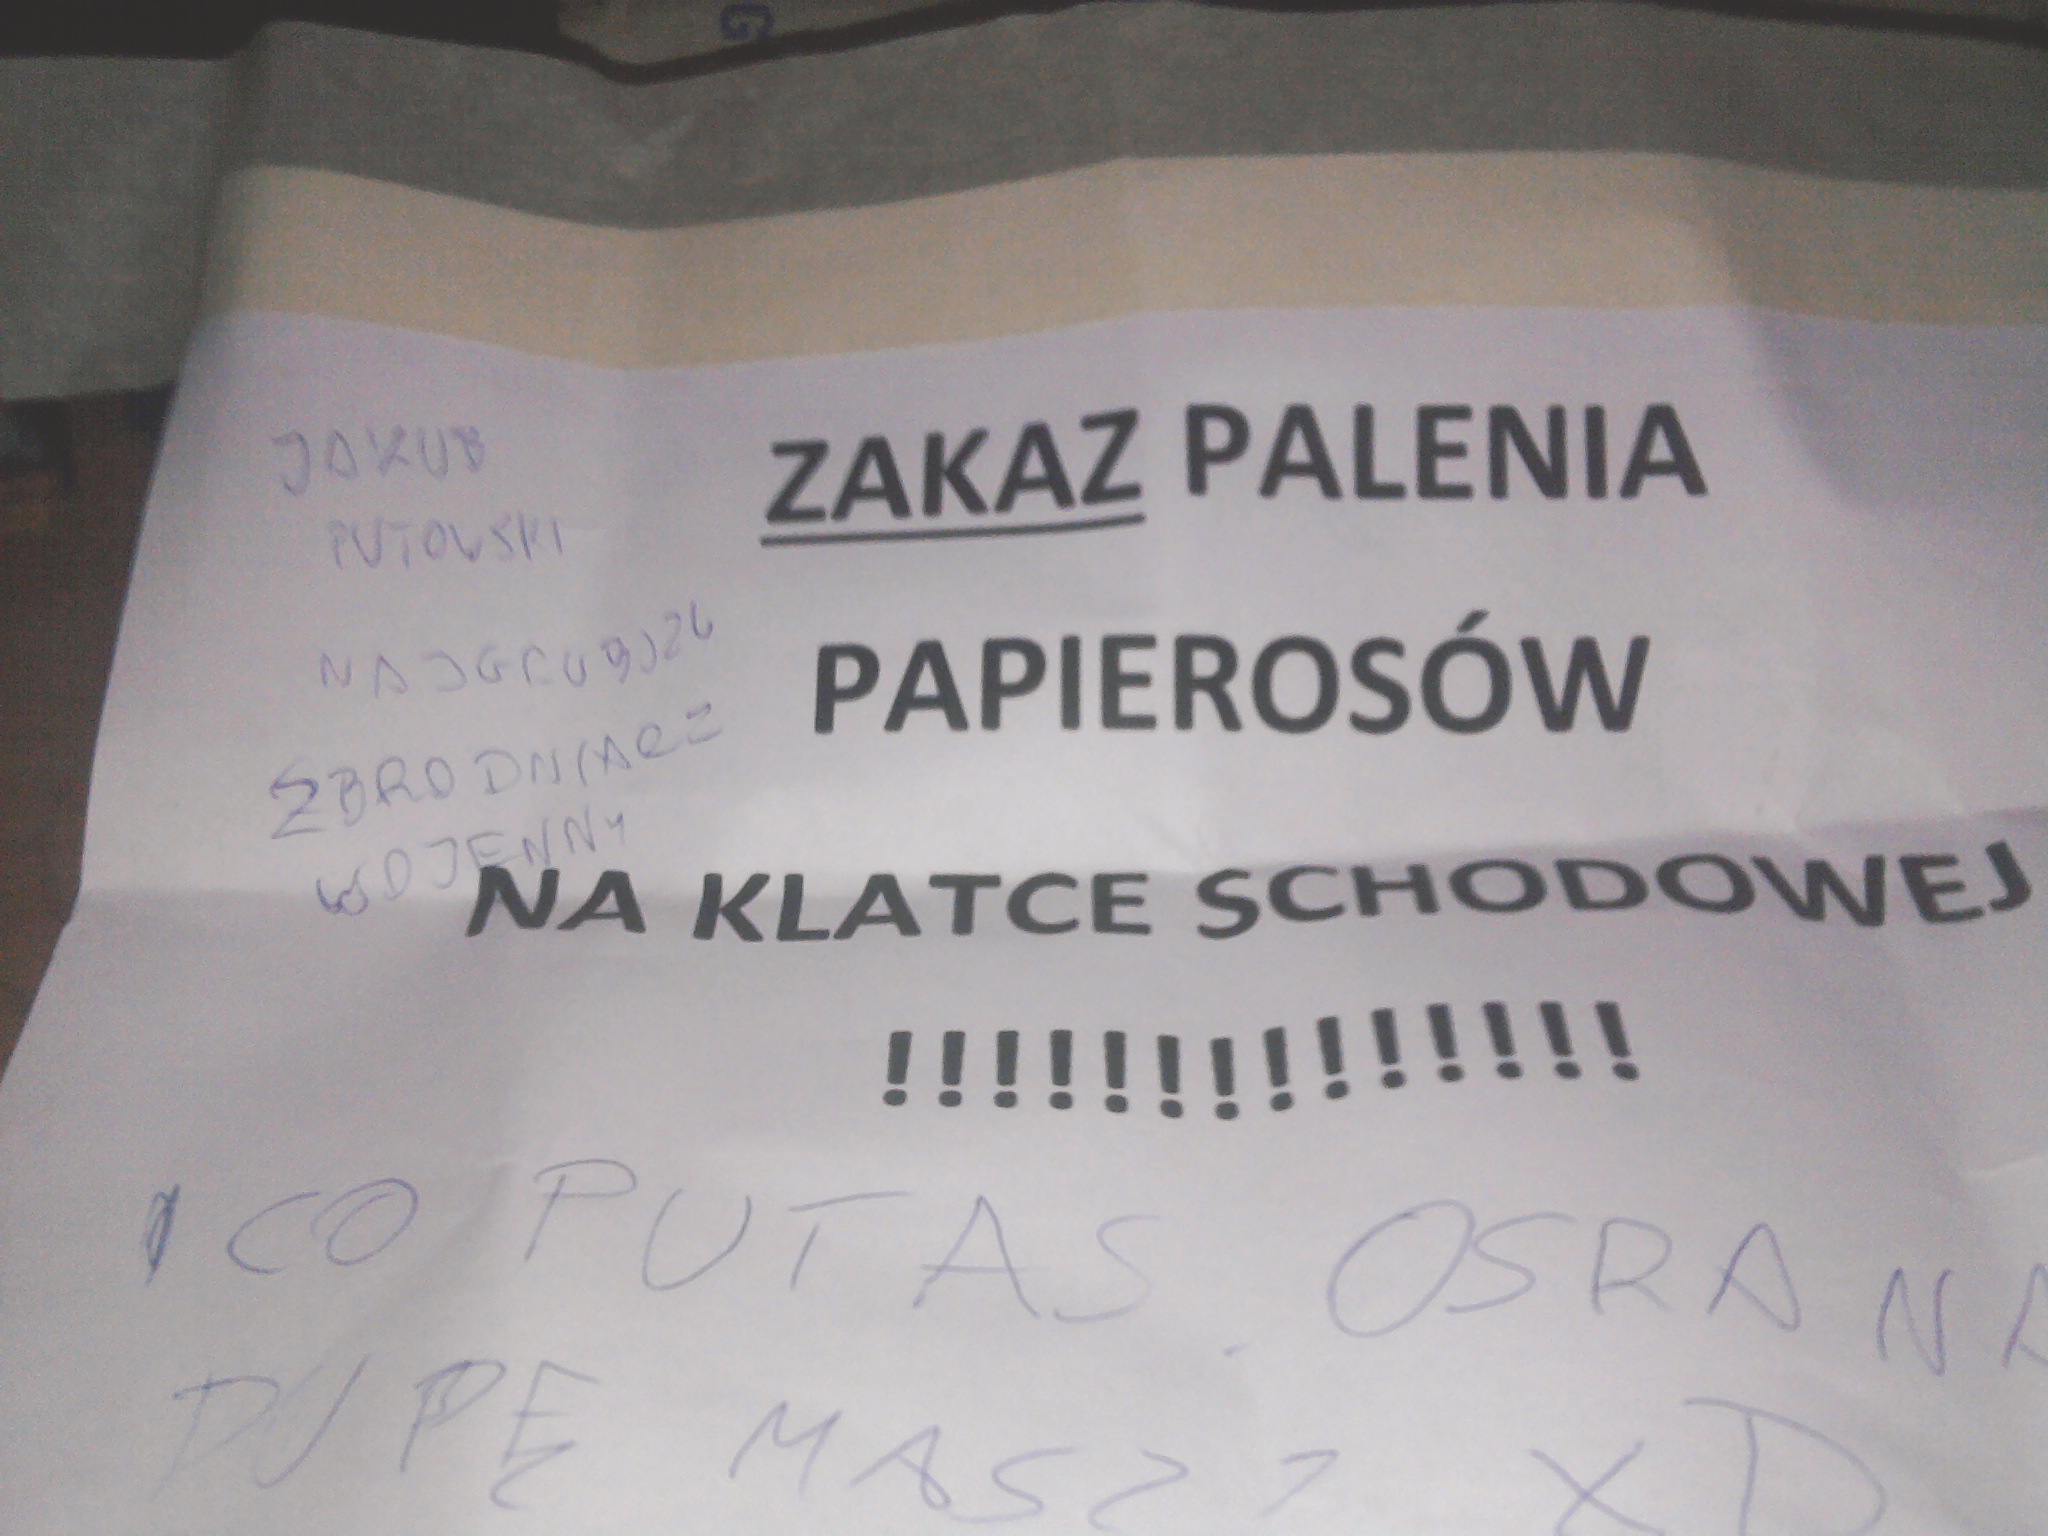 JAKUB
PUTOWSKI
ZBRODNIARZ
WOJENNY
ZAKAZ PALENIA
PAPIEROSÓW
NA KLATCE SCHODOWEJ
!!!!!!!!!!!!!!
I CO PUTAS. OSRANA
DUPĘ MASZ? XD